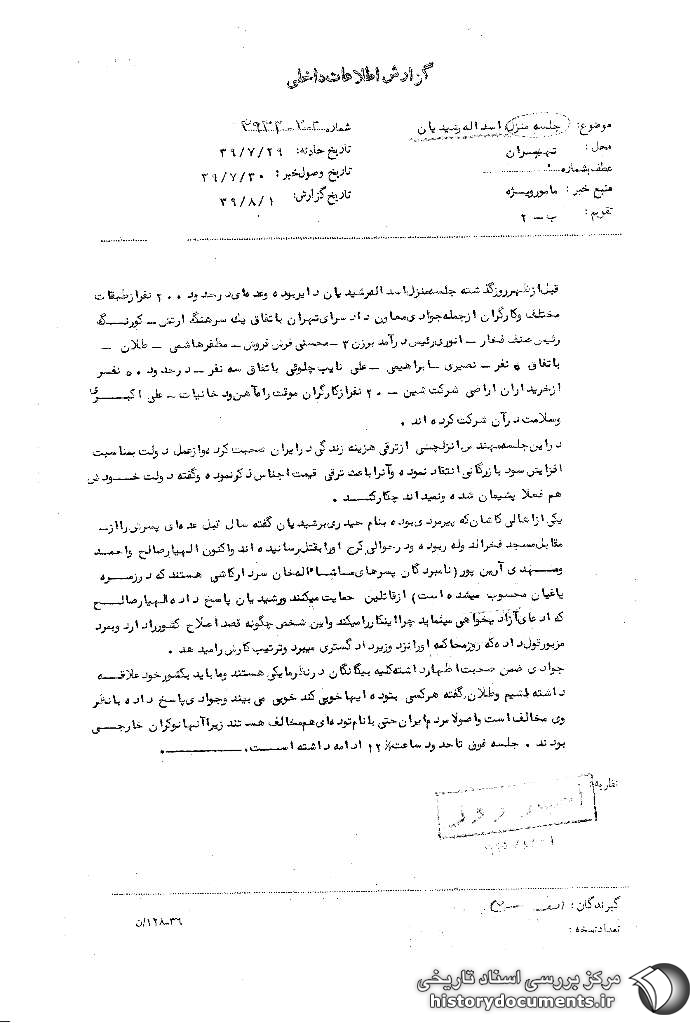 گزارش اطلاعات داخلی
موضوع: جلسه منزل اسداله رشیدیان
شماره
محل: تهران
تاریخ حادثه: ۳۹/۷/۲۹
عطف بشماره:
تاریخ وصول خبر: ۳۹/۷/۳۰
منبع خبر: مامور ویژه
تاریخ گزارش: ۳۹/۸/۱
تقویم: ب - ۲
قبل از ظهر روز گذشته جلسه منزل اسداله رشیدیان دایر بوده و عده‌ای در حدود ۲۰۰ نفر از طبقات
مختلف و کارگران از جمله جوادی معاون دادسرای تهران باتفاق یک سرهنگ ارتش - کورنگ
رئیس صنف فخار - انوری رئیس درآمد برزن ۳ - محسنی فرش فروش - مظفر هاشمی - طلان -
باتفاق نفر - نصیری - ابراهیمی - علی نایب چلوئی باتفاق سه نفر - در حدود ۵۰ نفر
از خریداران اراضی شرکت شین - ۲۰ نفر از کارگران موقت راه‌آهن و دخانیات - علی اکبر
و سلامت در آن شرکت کرده اند .
در این جلسه مهندس انزلچسی از ترقی هزینه زندگی در ایران صحبت کرده و از عمل دولت بمناسبت
افزایش سود بازرگانی انتقاد نموده و آنرا باعث ترقی قیمت اجناس ذکر نموده و گفته دولت خودش
هم فعلا پشیمان شده و نمیداند چکار کند .
یکی از اهالی کاشان که پیرمردی بوده بنام حیدری برشیدیان گفته سال قبل عده‌ای پسرش را از
مقابل مسجد فخرالدوله ربوده و در حوالی کرج او را بقتل رسانیده اند و اکنون الهیار صالح و احمد
و مهدی آرین پور (نامبردگان پسرهای ماشااله خان سردار کاشی هستند که در زمره
یاغیان محسوب میشده است) از قاتلین حمایت میکنند و رشیدیان پاسخ داده الهیار صالح
که ادعای آزادیخواهی مینماید چرا اینکار را میکند و این شخص چگونه قصد اصلاح کشور را دارد و بمرد
مزبور قول داده که روز محاکمه او را نزد وزیر دادگستری میبرد و ترتیب کارش را میدهد .
جوادی ضمن صحبت اظهار داشته کلیه بیگانگان در نظر ما یکی هستند و ما باید بکشور خود علاقه
داشته باشیم و طلان گفته هرکسی بتوده ایها خوبی کند خوبی می بیند و جوادی پاسخ داده با نظر
وی مخالف است و اصولا مردم ایران حتی با نام توده‌ای هم مخالف هستند زیرا آنها نوکران خارجی
بودند . جلسه فوق تا حدود ساعت ۱۲ ادامه داشته است .
نظاره
گیرندگان:
تعداد نسخه:
۳۶-۱۲۸/ن
مرکز بررسی اسناد تاریخی
historydocuments.ir